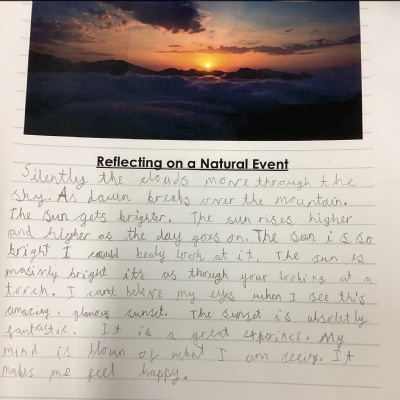 Reflecting on a Natural Event
Silently the clouds move through the
sky. As dawn breaks over the mountain.
The sun gets brighter. The sun rises higher
and higher as the day goes on. The sun is so
bright I could bealy look at it. The sun is
masivly bright its as though your looking at a
torch. I cant belive my eyes when I see this
amazing, glamous sunset. The sunset is absolutly
fantastic. It is a great experince. My
mind is blown of what I am seeing. It
makes me feel happy.